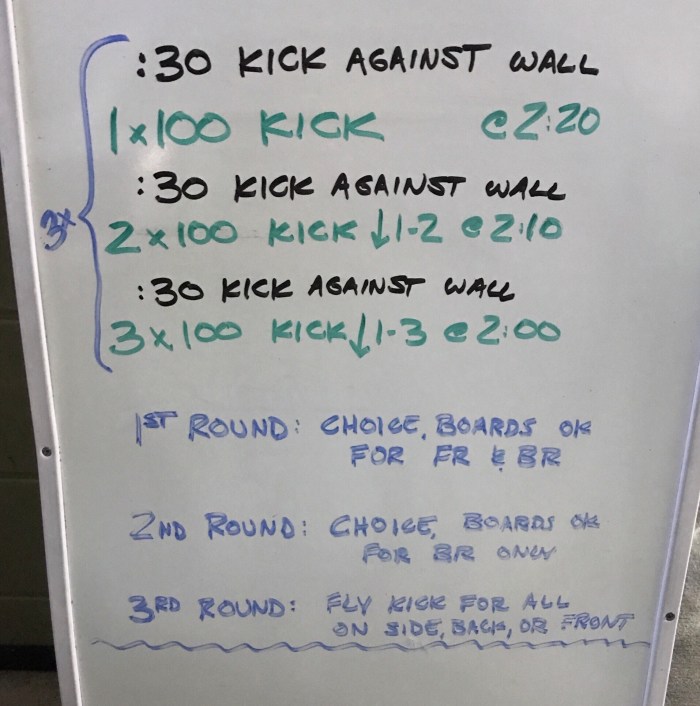 :30 KICK AGAINST WALL
1x100 KICK @2:20
:30 KICK AGAINST WALL
3x
2x100 KICK ↓1-2 @2:10
:30 KICK AGAINST WALL
3x100 KICK ↓1-3 @2:00
1ST ROUND: CHOICE, BOARDS OK
FOR FR & BR
2ND ROUND: CHOICE, BOARDS OK
FOR BR ONLY
3RD ROUND: FLY KICK FOR ALL
ON SIDE, BACK, OR FRONT